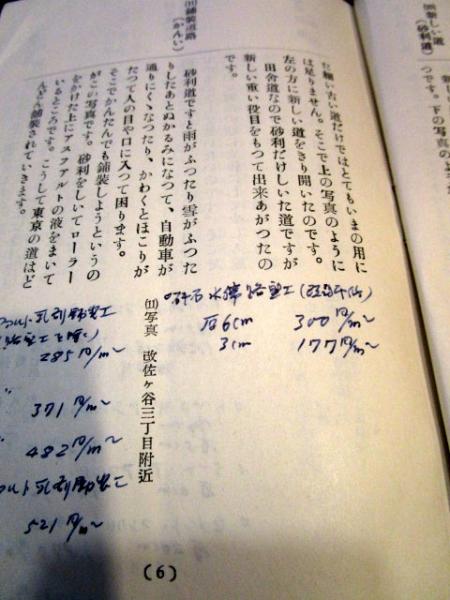 新しい道
(砂利道)
つです。下の写真の
た細い古い道だけではとてもいまの用に
は足りません。そこで上の写真のように
左の方に新しい道をきり開いたのです。
田舎道なので砂利だけしいた道ですが
新しい重い役目をもつて出来あがつたの
です。
⑾舗装道路
(かんい)
砂利道ですと雨がふつたり雪がふつた
りしたあとぬかるみになつて、自動車が
通りにくゝなつたり、かわくとほこりが
たつて人の目や口に入つて困ります。
そこでかんたんでも舗装しようというの
がこの写真です。砂利をしいてローラー
をかけた上にアスファルトの液をまいて
いるところです。こうして東京の道はど
んどん舗装されていきます。
⑾写真 改佐ヶ谷三丁目附近
砕石水締路盤工
厚6cm 300円/m²
3cm 177円/m²
285円/m²
371円/m²
482円/m²
521円/m²
(6)